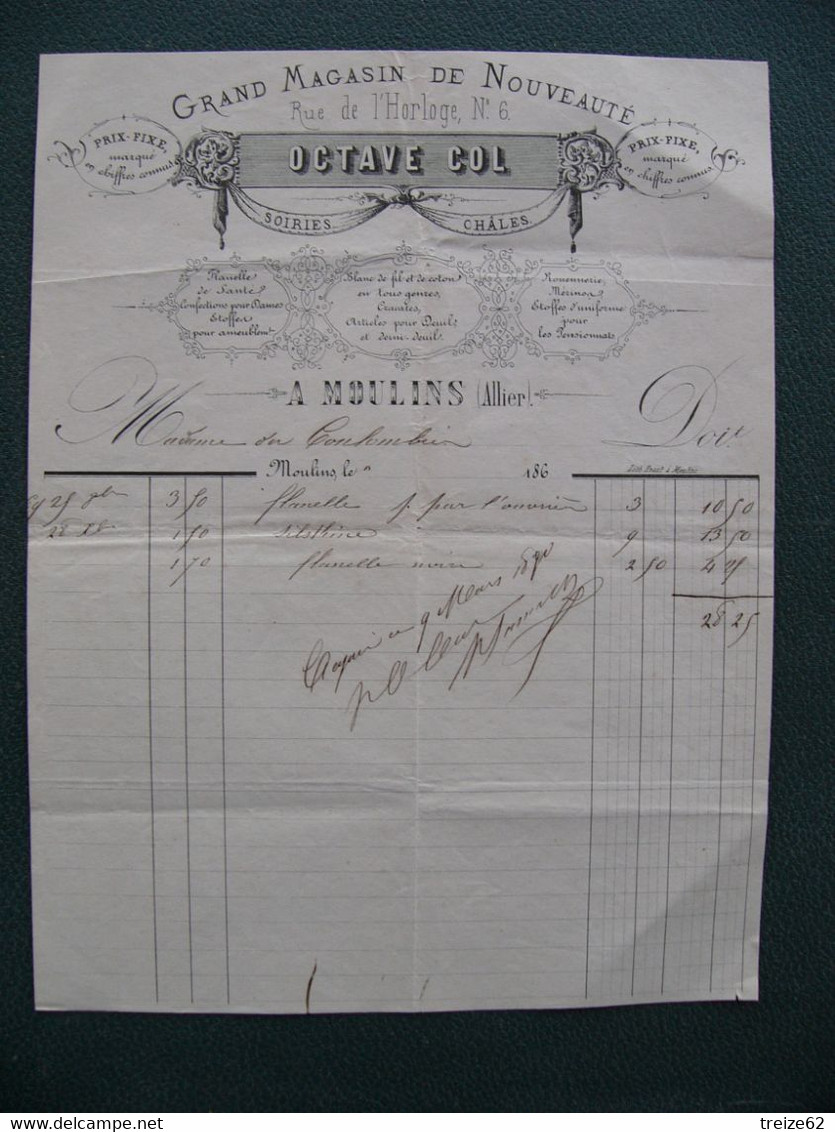 GRAND MAGASIN DE NOUVEAUTÉ
Rue de l'Horloge, N° 6.
PRIX-FIXE,
marqué
en chiffres connus.
OCTAVE COL
PRIX-FIXE,
marqué
en chiffres connus.
SOIRIES.
CHÂLES.
Flanelle
de Santé
Confections pour Dames
Etoffes
pour ameublent
Blanc de fil et de coton
en tous genres,
Cravates,
Articles pour Deuils
et demi-deuil.
Rouennerie,
Mérinos,
Etoffes d'uniforme
pour
les Pensionnats.
A MOULINS (Allier).
Madame du
Doit
Moulins, le 186
25 3 50 flanelle p par l'ouvrière 3 10 50
28 1 50 9 13 50
1 70 flanelle noire 2 50 4 25
28 25
9 Mars 1870
treize62
delcampe.net